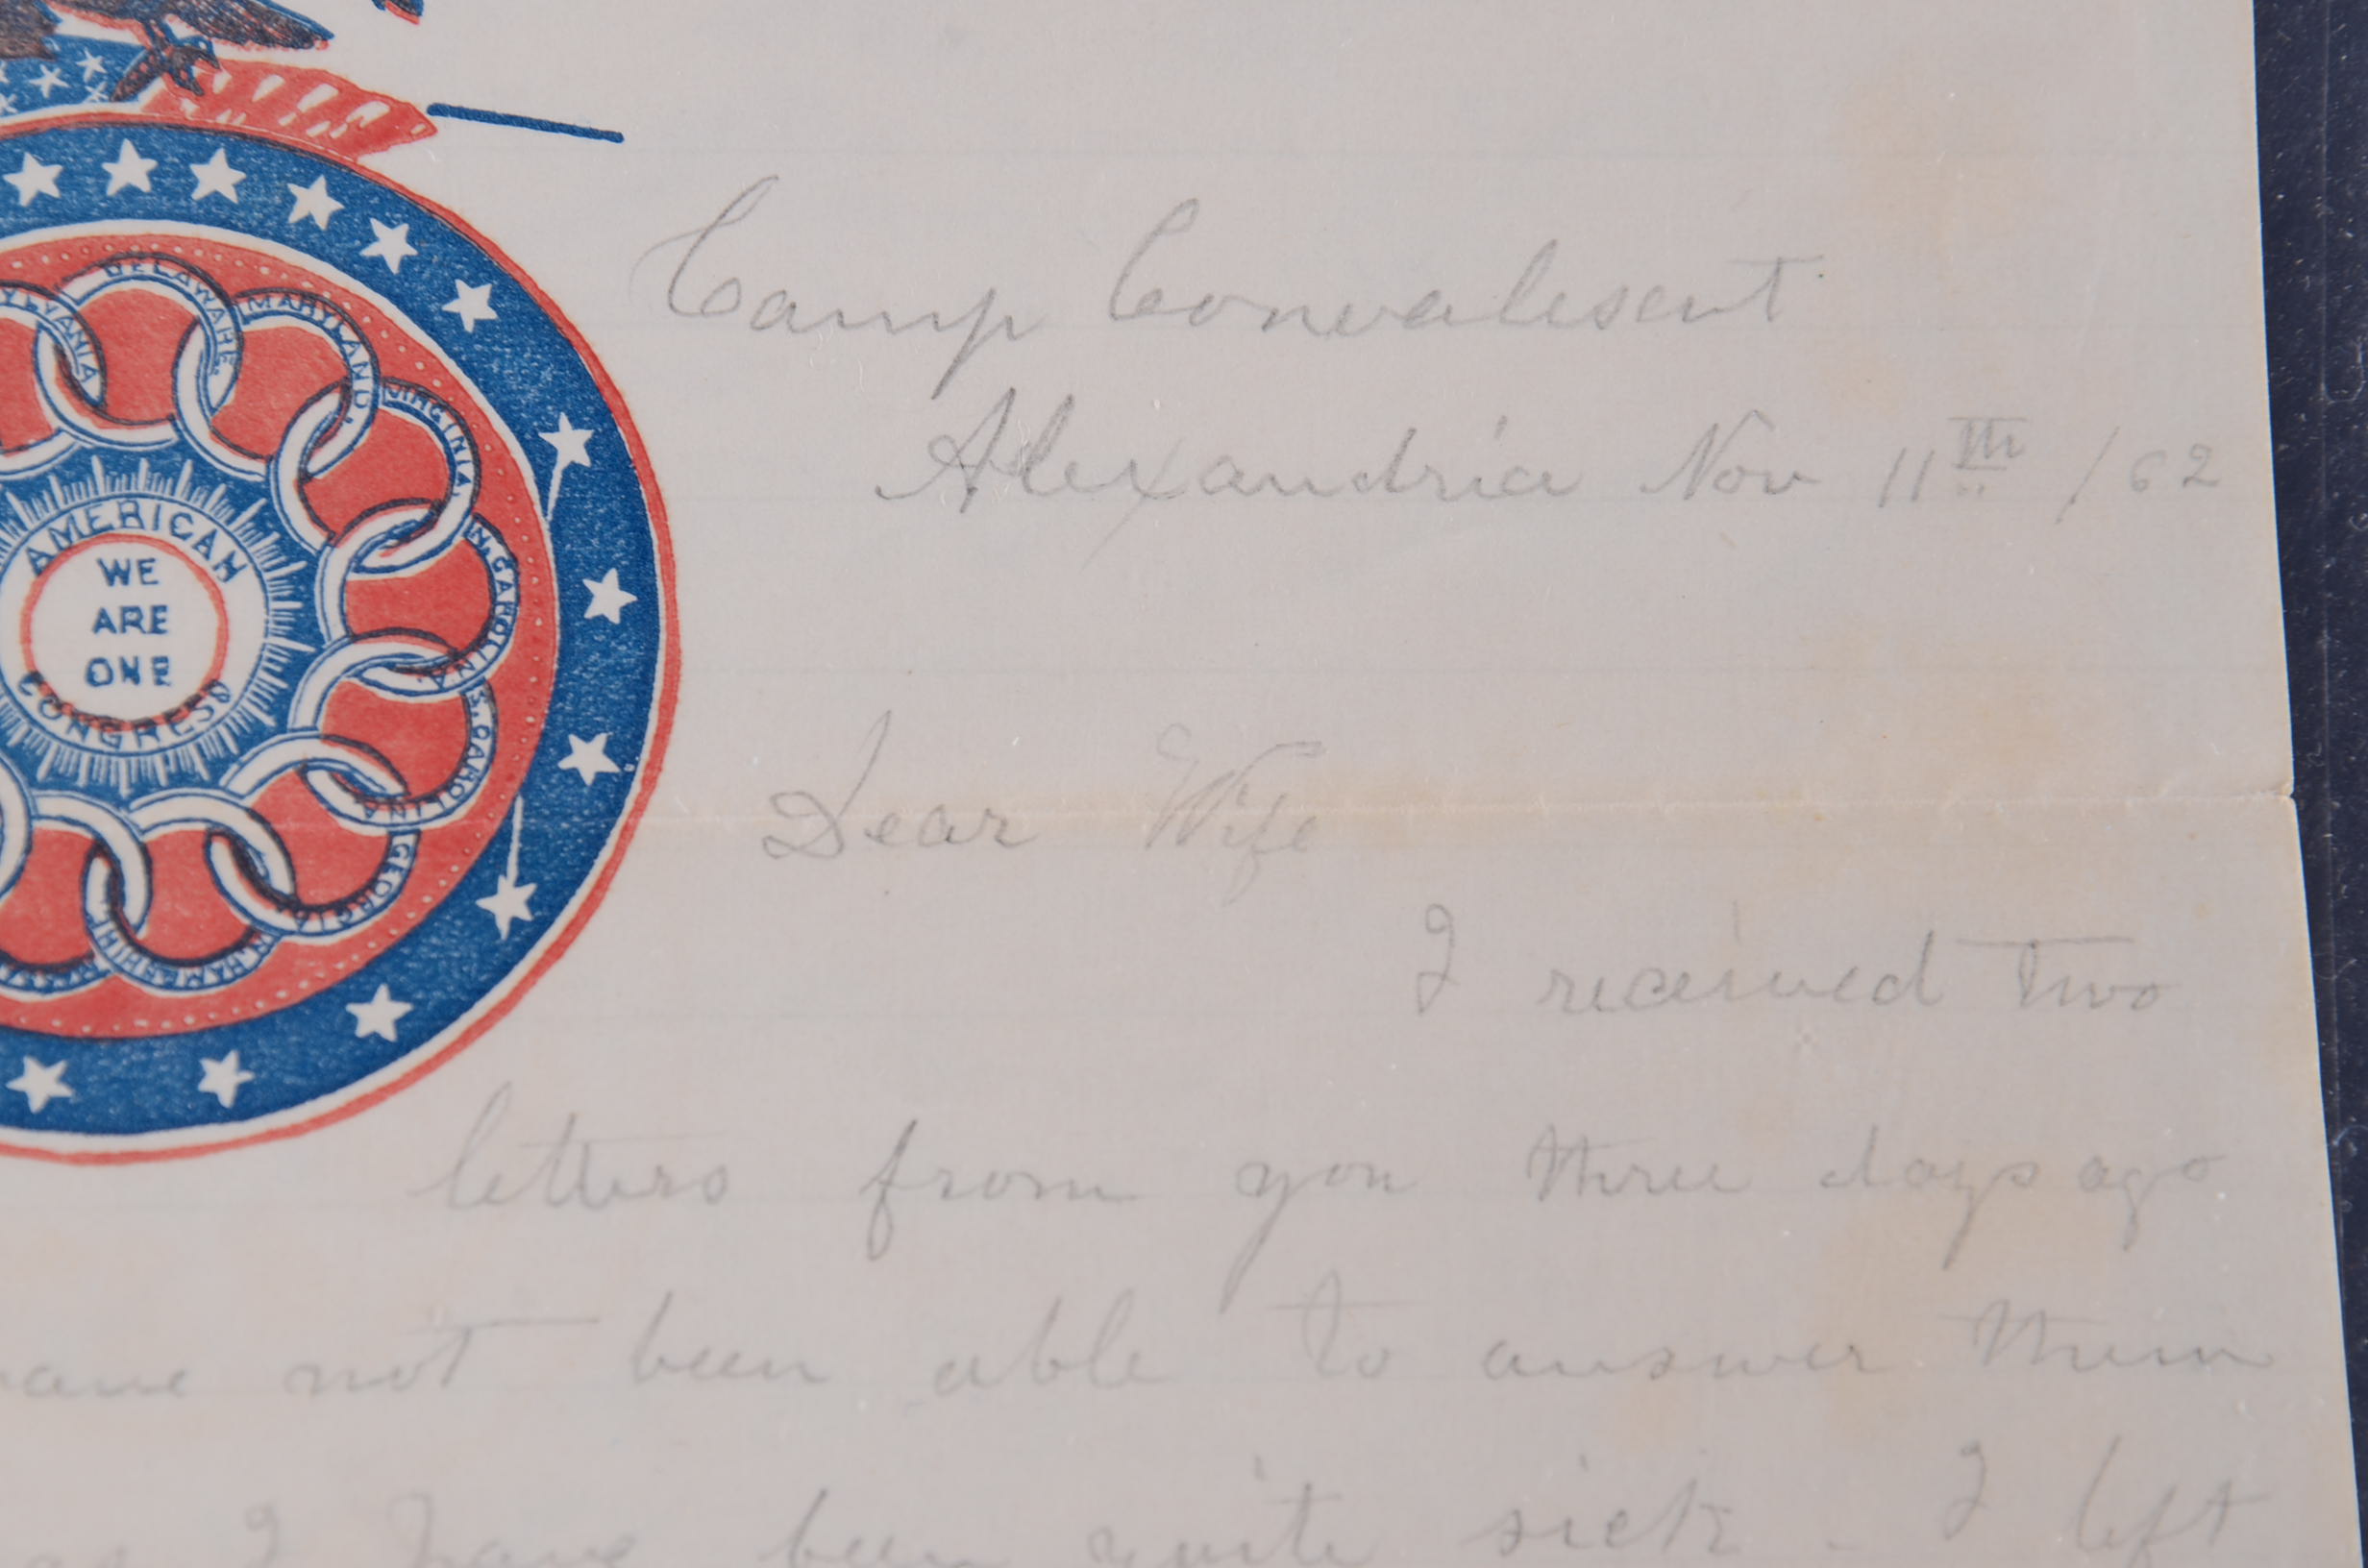 DELAWARE.
MARYLAND.
VIRGINIA.
N. CAROLINA
S. CAROLINA
GEORGIA
AMERICAN
WE
ARE
ONE
CONGRESS
Camp Convalesent
Alexandria Nov 11th /62
Dear Wife
I received two
letters from you three days ago
not been able to answer them
I have been quite sick - I left